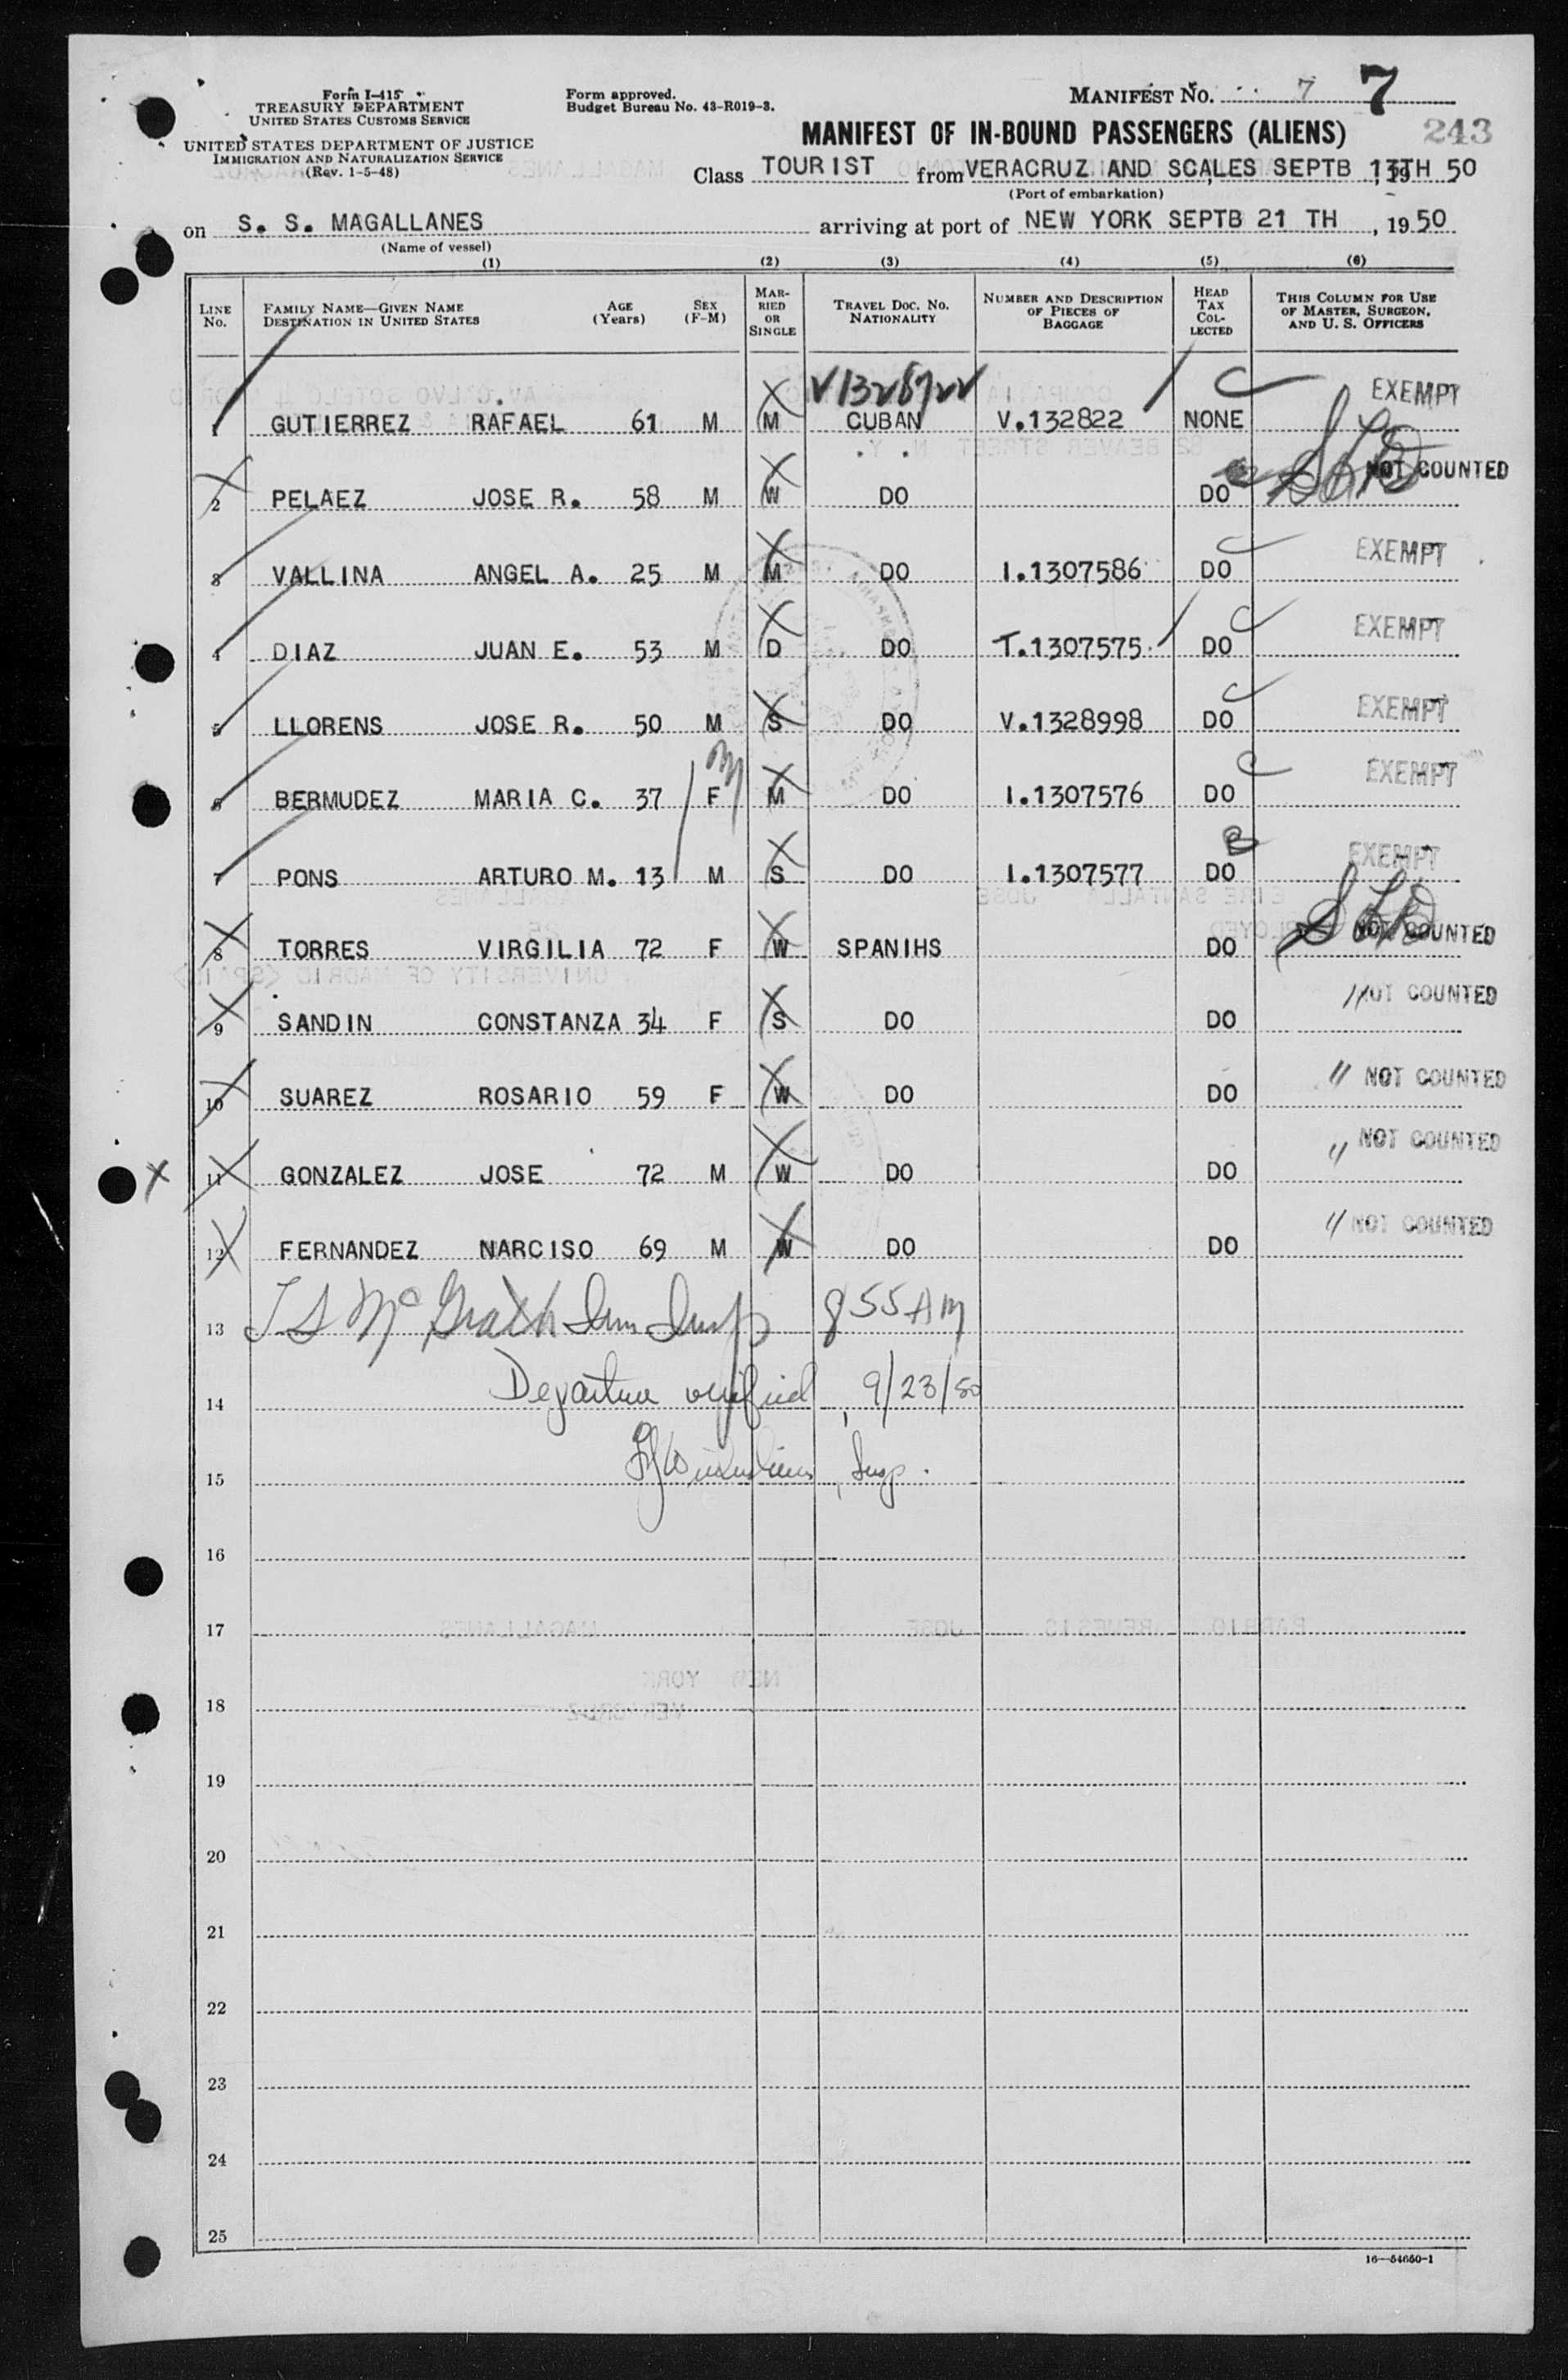 Form I-415
TREASURY DEPARTMENT
UNITED STATES CUSTOMS SERVICE
UNITED STATES DEPARTMENT OF JUSTICE
IMMIGRATION AND NATURALIZATION SERVICE
(Rev. 1-5-48)
Form approved.
Budget Bureau No. 43-R019-3.
MANIFEST NO. 7 7
MANIFEST OF IN-BOUND PASSENGERS (ALIENS) 243
Class TOURIST from VERACRUZ AND SCALES SEPTB 13TH, 19 50
(Port of embarkation)
on S. S. MAGALLANES arriving at port of NEW YORK SEPTB 21 TH, 1950
(Name of vessel)
(1) (2) (3) (4) (5) (6)
LINE No. FAMILY NAME—GIVEN NAME DESTINATION IN UNITED STATES AGE (Years) SEX (F-M) MARRIED OR SINGLE TRAVEL DOC. NO. NATIONALITY NUMBER AND DESCRIPTION OF PIECES OF BAGGAGE HEAD TAX COLLECTED THIS COLUMN FOR USE OF MASTER, SURGEON, AND U. S. OFFICERS
1 GUTIERREZ RAFAEL 61 M M CUBAN V.132822 NONE C EXEMPT
2 PELAEZ JOSE R. 58 M W DO DO NOT COUNTED
3 VALLINA ANGEL A. 25 M M DO I.1307586 DO C EXEMPT
4 DIAZ JUAN E. 53 M D DO T.1307575 DO C EXEMPT
5 LLORENS JOSE R. 50 M S DO V.1328998 DO C EXEMPT
6 BERMUDEZ MARIA C. 37 F M M DO I.1307576 DO C EXEMPT
7 PONS ARTURO M. 13 M S DO I.1307577 DO B EXEMPT
8 TORRES VIRGILIA 72 F W SPANIHS DO NOT COUNTED
9 SANDIN CONSTANZA 34 F S DO DO " NOT COUNTED
10 SUAREZ ROSARIO 59 F W DO DO " NOT COUNTED
X 11 GONZALEZ JOSE 72 M W DO DO " NOT COUNTED
12 FERNANDEZ NARCISO 69 M W DO DO " NOT COUNTED
13 T S McGrath Imm Insp 8 55 AM
14 Departure verified, 9/23/50
15 Insp.
16
17
18
19
20
21
22
23
24
25
16—54650-1